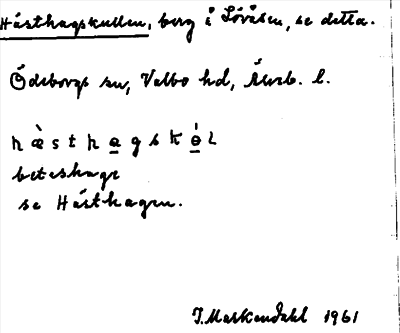 Hästhagskullen, berg å Lövåsen, se detta.
Ödeborgs sn, Valbo hd, Älvsb. l.
hæ̀sthagskól
beteshage
se Hästhagen.
J. Markendahl 1961